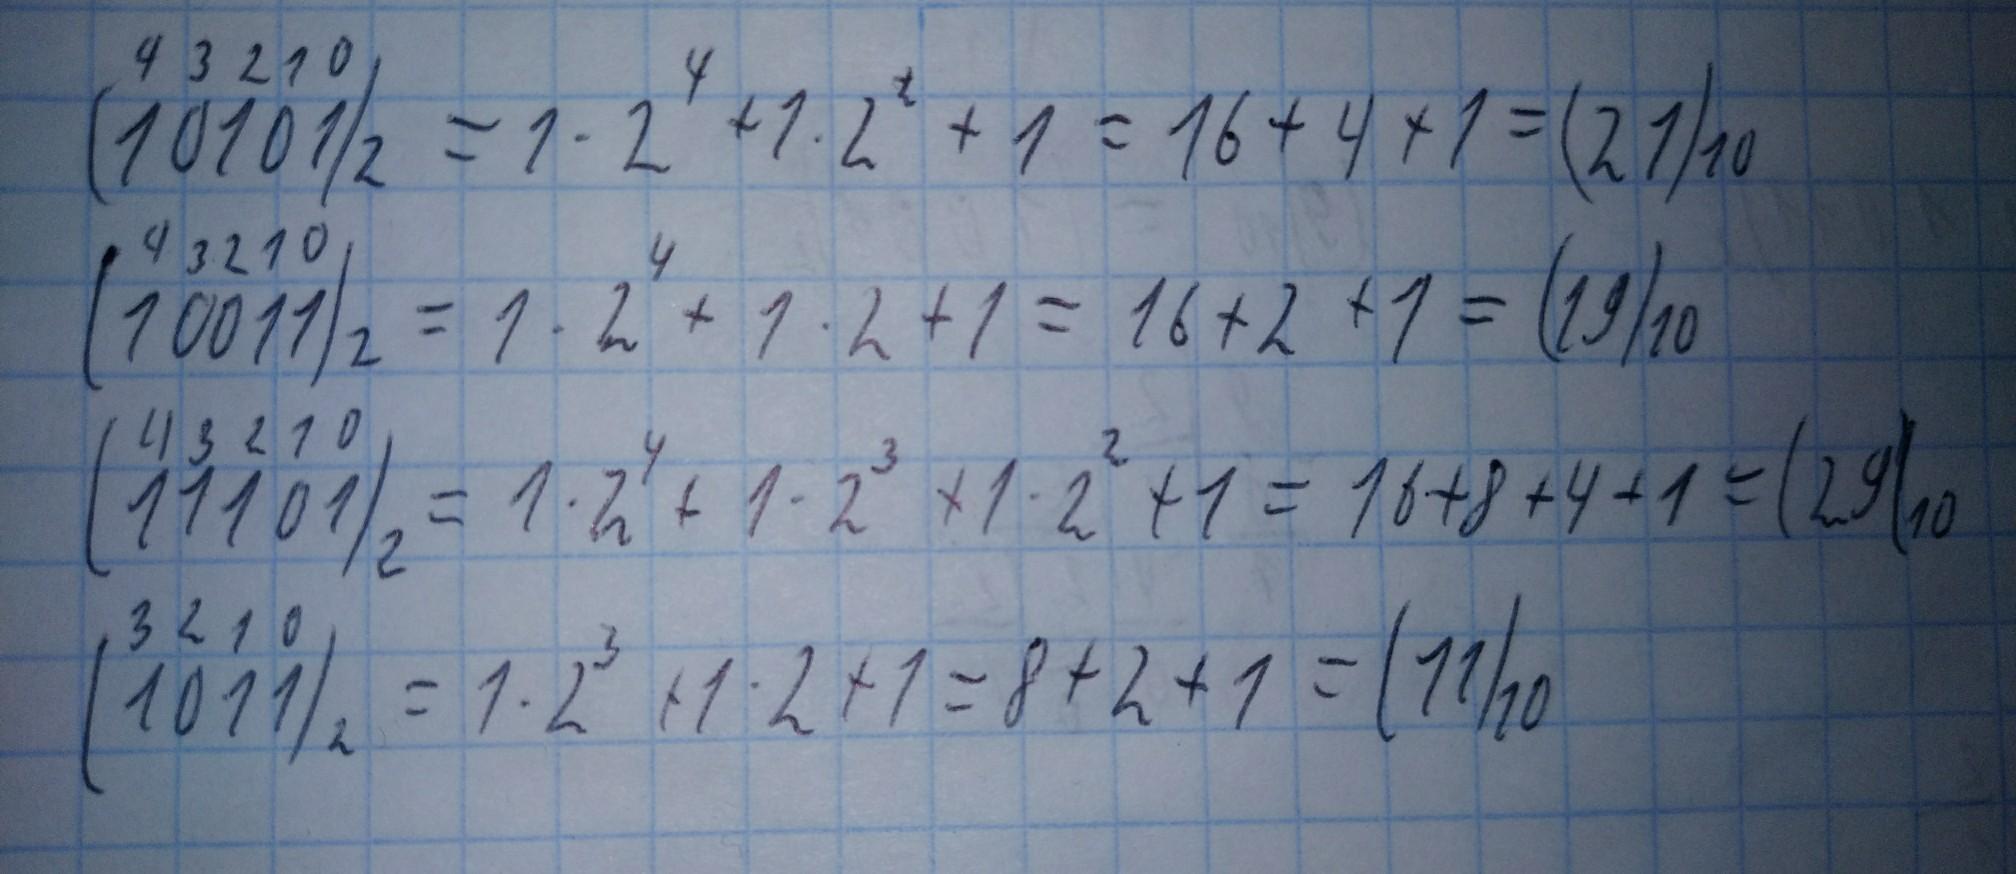 4 3 2 1 0
(10101)2 = 1 · 2^4 + 1 · 2^2 + 1 = 16 + 4 + 1 = (21)10
4 3 2 1 0
(10011)2 = 1 · 2^4 + 1 · 2 + 1 = 16 + 2 + 1 = (19)10
4 3 2 1 0
(11101)2 = 1 · 2^4 + 1 · 2^3 + 1 · 2^2 + 1 = 16 + 8 + 4 + 1 = (29(10
3 2 1 0
(1011)2 = 1 · 2^3 + 1 · 2 + 1 = 8 + 2 + 1 = (11)10